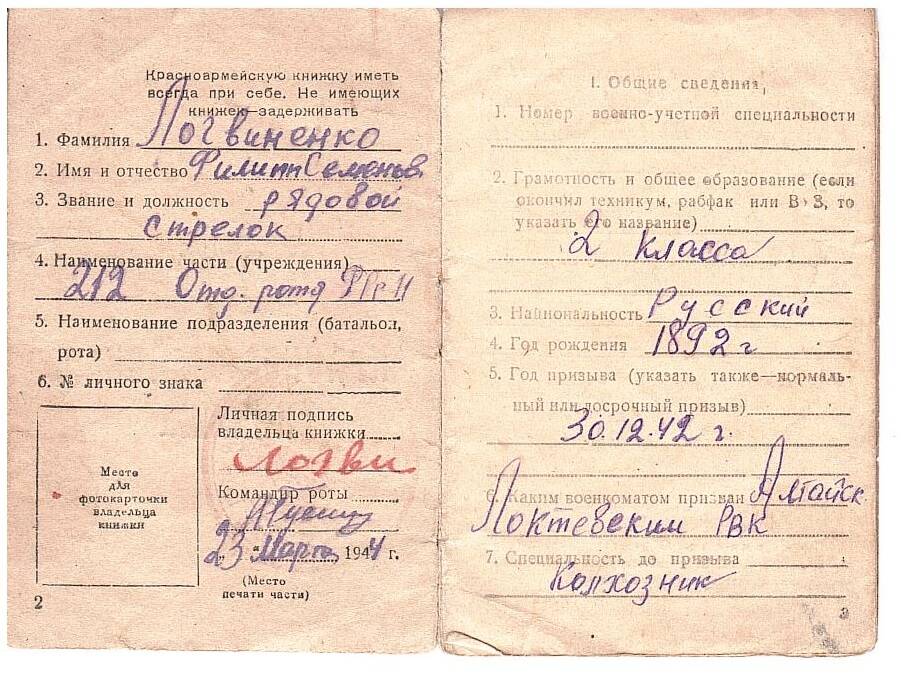 Красноармейскую книжку иметь
всегда при себе. Не имеющих
книжек—задерживать
1. Фамилия Логвиненко
2. Имя и отчество Филипп Семенов
3. Звание и должность рядовой
стрелок
4. Наименование части (учреждения)
212 Отд. рота
5. Наименование подразделения (батальон,
рота)
6. № личного знака
Место
для
фотокарточки
владельца
книжки
Личная подпись
владельца книжки
Логви
Командир роты
„23" Марта 1944 г.
(Место
печати части)
2
I. Общие сведения
1. Номер военно-учетной специальности
2. Грамотность и общее образование (если
окончил техникум, рабфак или ВУЗ, то
указать его название)
2 класса
3. Национальность Русский
4. Год рождения 1892 г
5. Год призыва (указать также—нормаль-
ный или досрочный призыв)
30.12.42 г.
6. Каким военкоматом призван Алтайск
Локтевский РВК
7. Специальность до призыва
Колхозник
3